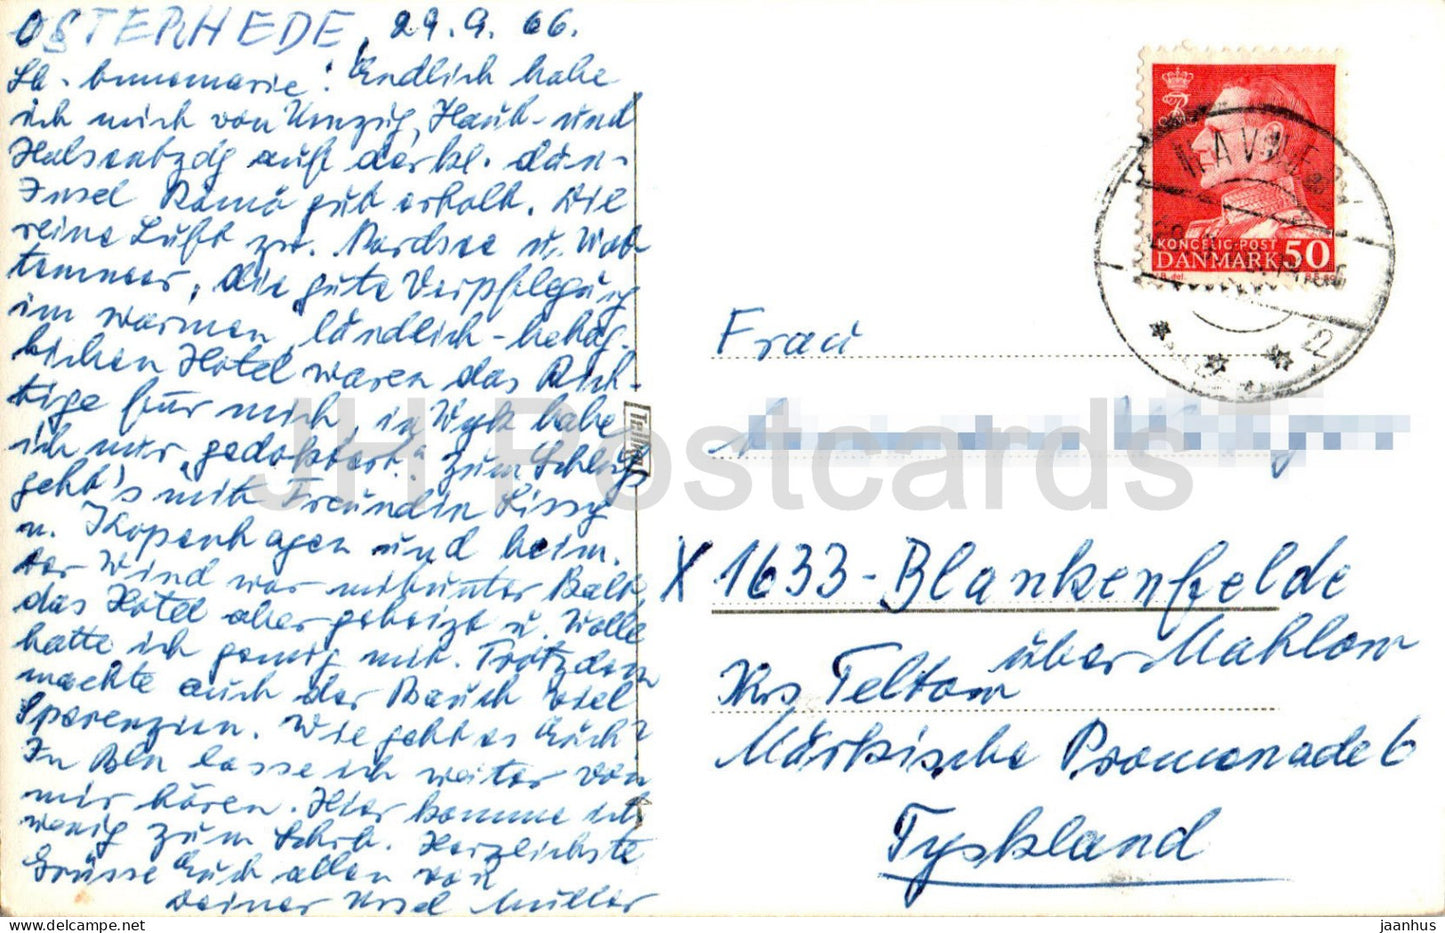 OSTERHEDE, 29.9.66.
Lb. Annemarie! Endlich habe
ich mich von Umzug, Haut- und
Halsentzdg auf der kl. dän.
Insel Römö gut erholt. Die
reine Luft zw. Nordsee u. Wat-
tenmeer, die gute Verpflegung
im warmen, ländlich-behag-
lichen Hotel waren das Rich-
tige für mich, in Wyk habe
ich nur „gedoktert". Zum Schluß
geht's mit Freundin Lissy
n. Kopenhagen und heim.
Der Wind war mitunter kalt,
das Hotel aber geheizt u. Wolle
hatte ich genug mit. Trotzdem
machte auch der Bauch viel
Sperenzien. Wie geht es Euch?
In Bln lasse ich weiter von
mir hören. Hier komme ich
wenig zum Schrb. Herzlichste
Grüsse Euch allen von
Deiner Ursel Müller
KONGELIG·POST
DANMARK 50
22
Frau
X 1633-Blankenfelde
über Mahlow
Krs Teltow
Märkische Promenade 6
Tyskland
JH Postcards
delcampe.net
jaanhus